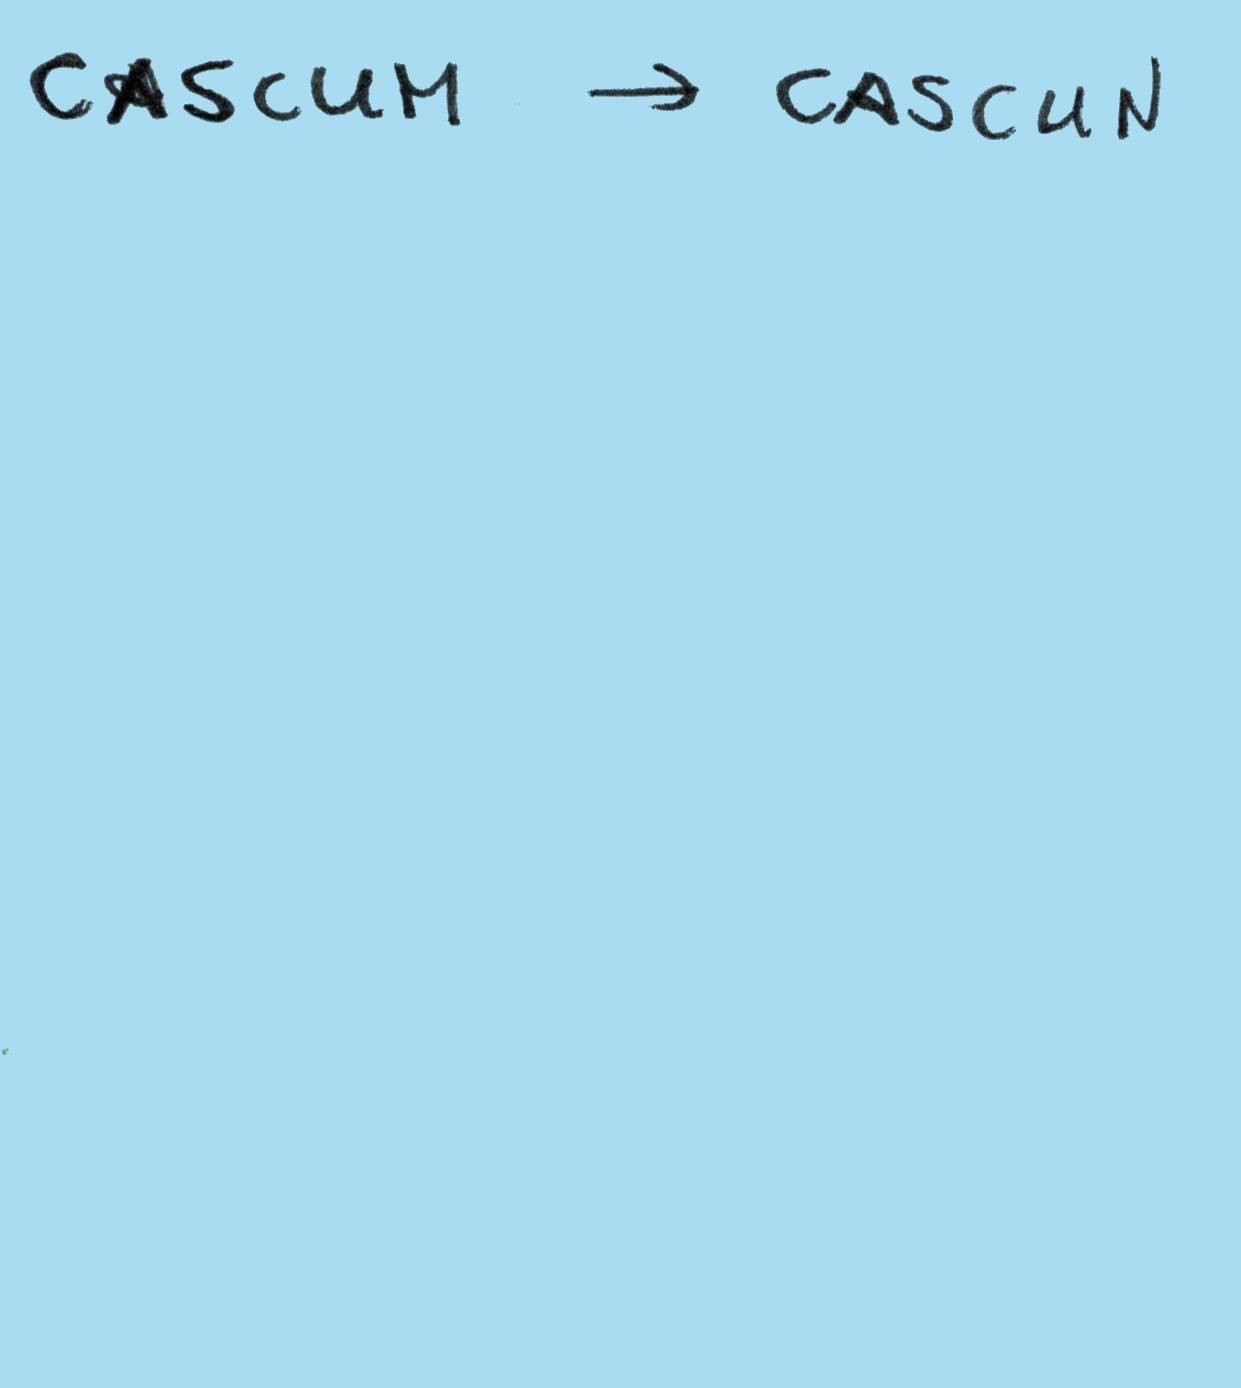 CASCUM → CASCUN